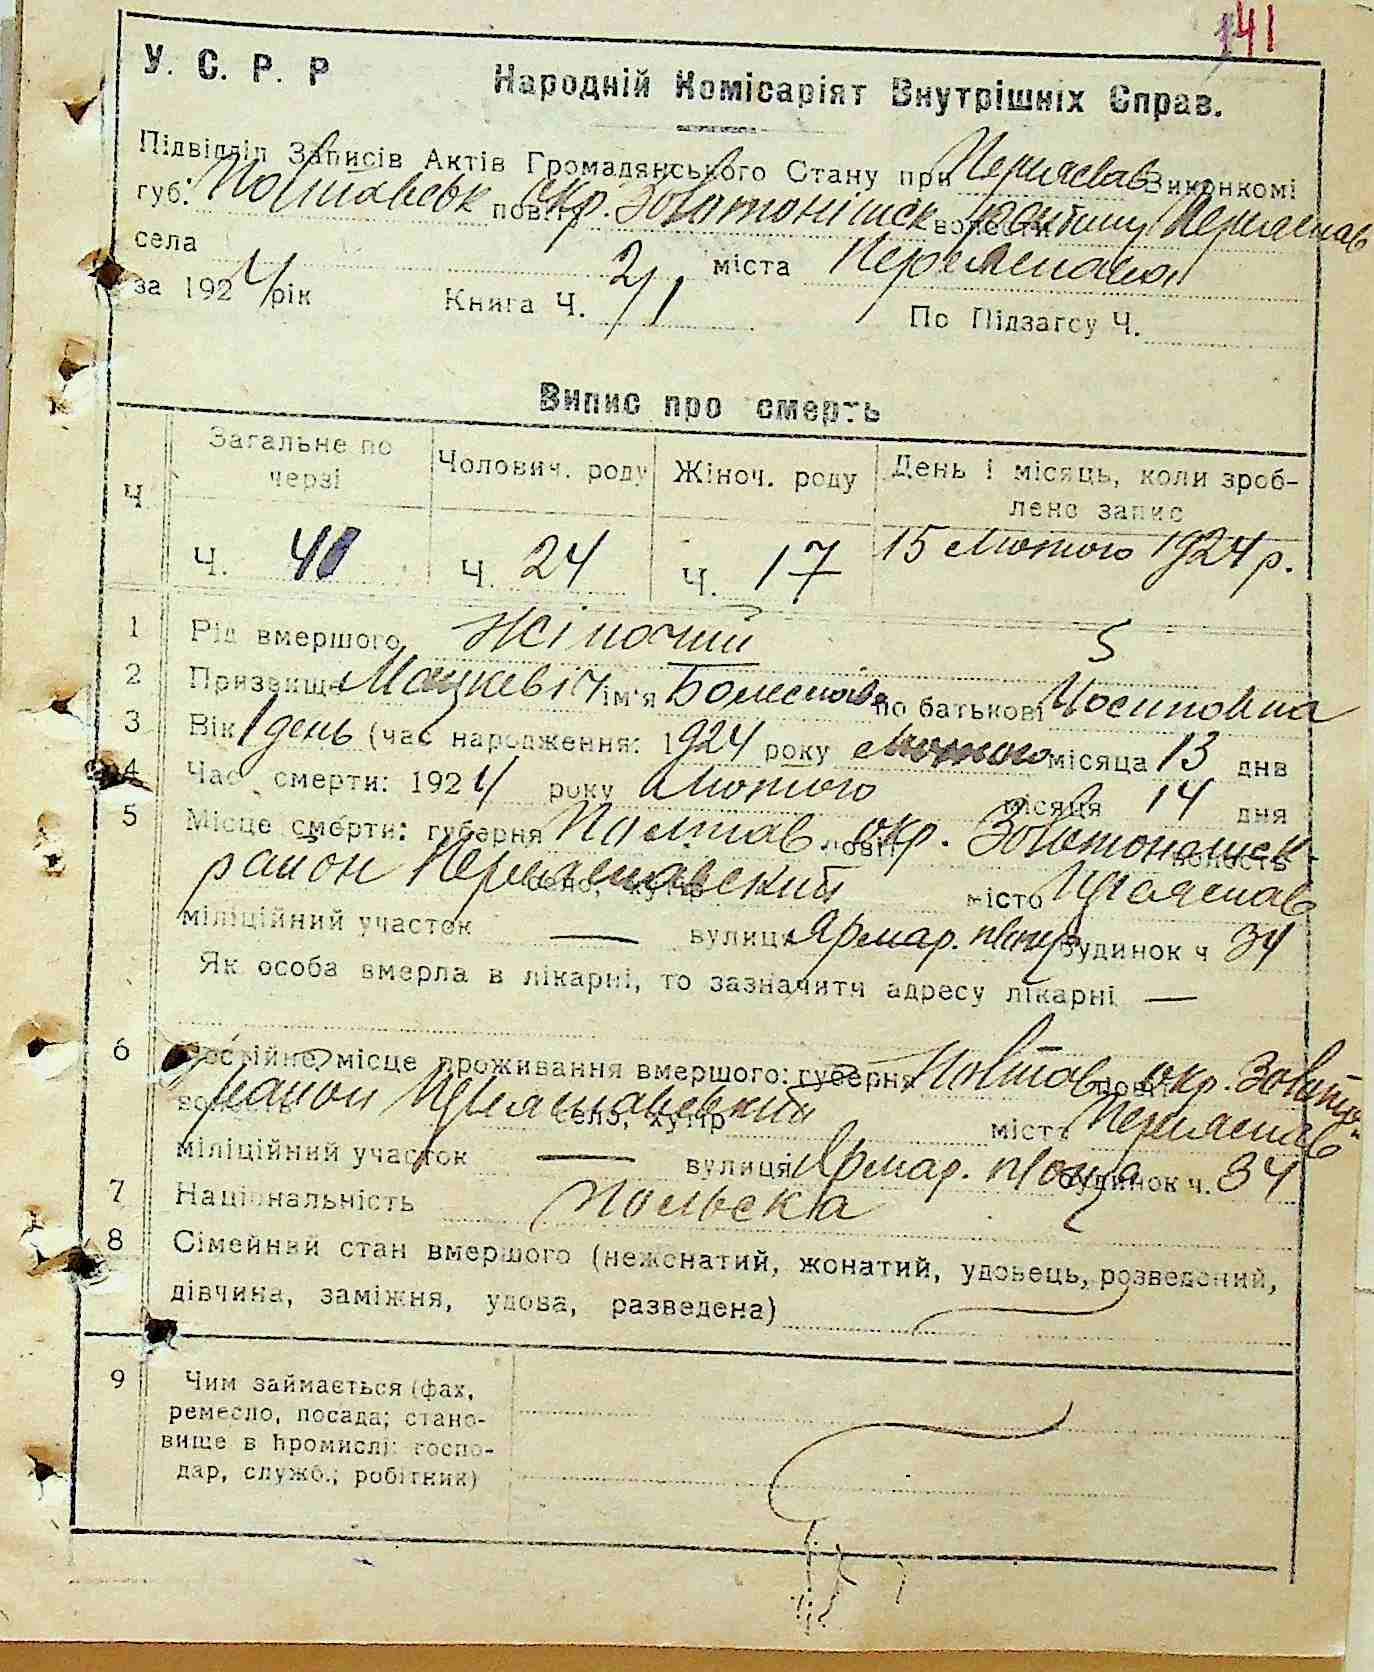 141
У. С. Р. Р Народній Комісаріят Внутрішніх Справ.
Підвідділ Записів Актів Громадянського Стану при Переяслав Виконкомі
губ: Полтавськ повіту окр. Золотонішск волости Переяслав
села міста Переяслава
за 1924 рік Книга Ч. 2/1 По Підзагсу Ч.
Випис про смерть
Ч Загальне по черзі Чолович. роду Жіноч. роду День і місяць, коли зроб-
лено запис
Ч. 41 Ч. 24 Ч. 17 15 Лютого 1924 р.
1 Рід вмершого Жіночий 5
2 Призвище Мацкевіч ім'я Болеслава по батькові Иосиповна
3 Вік 1 день (час народження: 1924 року Лютого місяца 13 днв
4 Час смерти: 1924 року Лютого місяця 14 дня
5 Місце смерти: губерня Полтав. повіт окр. Золотонішск волость
район Переяславский село, хутір місто Переяслав
міліційний участок — вулиця Ярмар. площа будинок ч 34
Як особа вмерла в лікарні, то зазначити адресу лікарні —
6 Постійне місце проживання вмершого: губерня Полтав повіт окр. Золотон
волость район Переяславский село, хутір місто Переяслав
міліційний участок — вулиця Ярмар. площа будинок ч. 34
7 Національність Польска
8 Сімейний стан вмершого (нежонатий, жонатий, удовець, розведений,
дівчина, заміжня, удова, разведена)
9 Чим займається (фах,
ремесло, посада; стано-
вище в промислі: госпо-
дар, служб.; робітник)